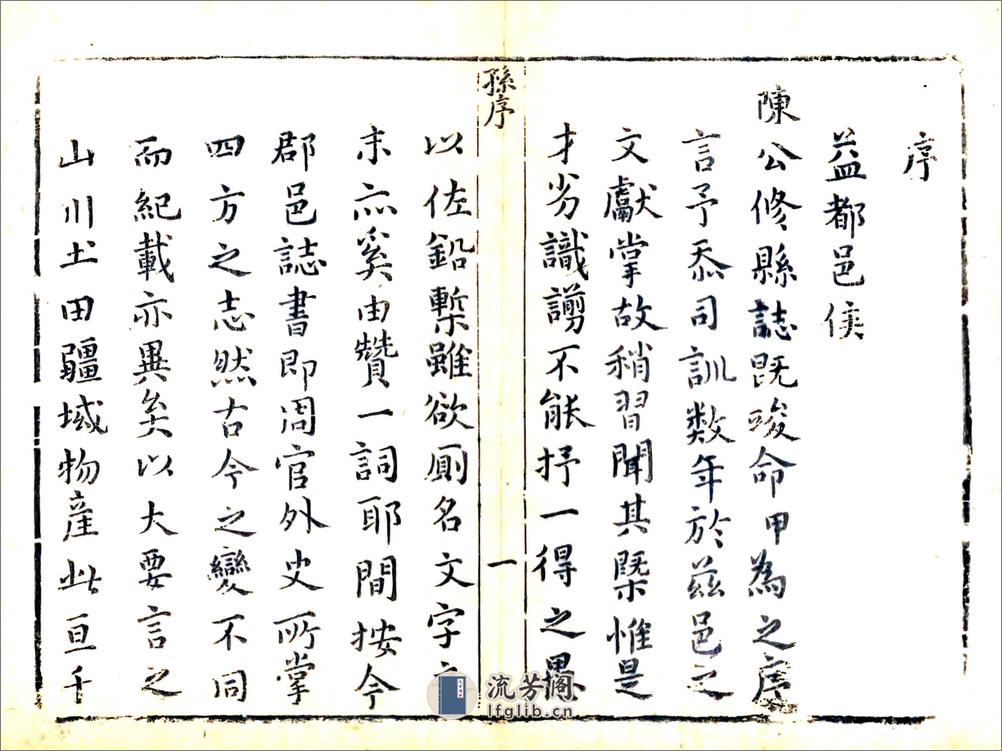 序
益都邑侯
陳公修縣誌既竣命甲為之序
言予忝司訓数年於茲邑之
文獻掌故稍習聞其槩惟是
才劣識謭不能抒一得之愚
孫序
一
以佐鉛槧雖欲厠名文字之
末亦奚由贊一詞耶間按今
郡邑誌書即周官外史所掌
四方之志然古今之變不同
而紀載亦異矣以大要言之
山川土田疆域物産此亘千
流芳阁
lfglib.cn